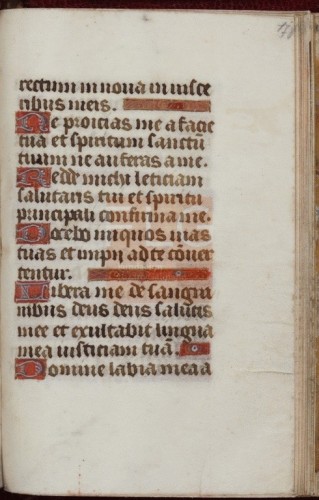 rectum innova in visce
ribus meis.
Ne proicias me a facie
tua et spiritum sanctū
tuum ne auferas a me.
Redde michi leticiam
salutaris tui et spiritu
principali confirma me.
Docebo iniquos vias
tuas et impii ad te cōver
tentur.
Libera me de sangui
nibus deus deus salutis
mee et exultabit lingua
mea iusticiam tuā.
Domine labia mea a